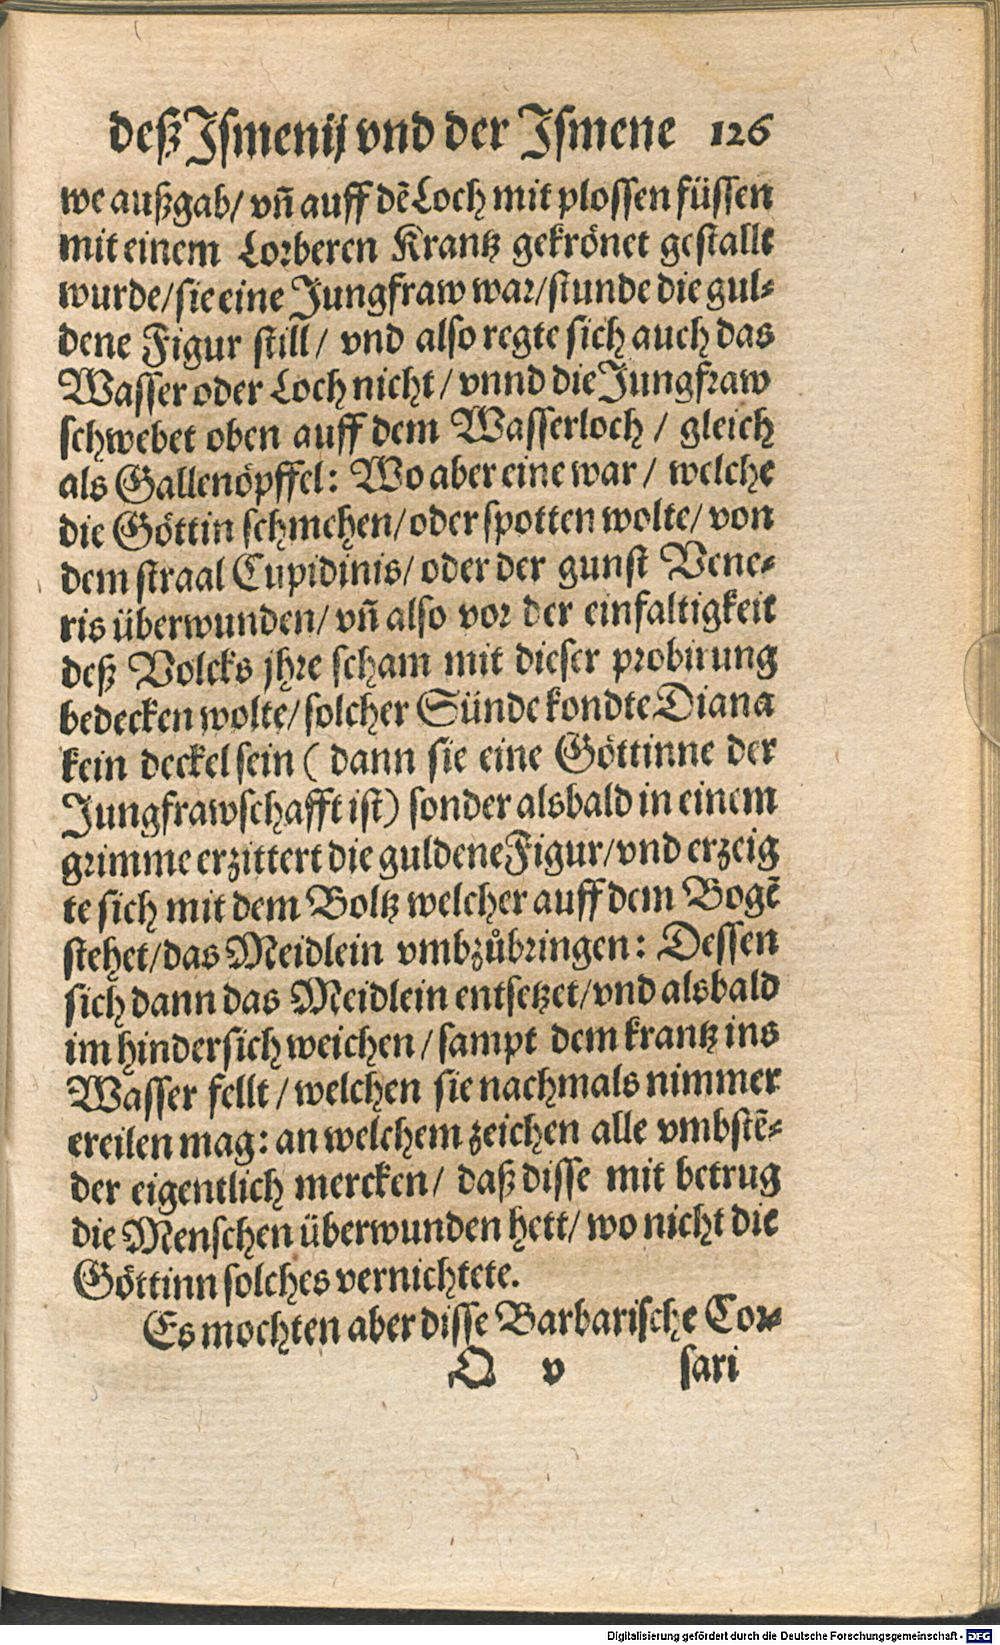 deß Ismenij vnd der Ismene 126
we außgab/ vñ auff dẽ Loch mit plossen füssen
mit einem Lorberen Krantz gekrönet gestallt
wurde/ sie eine Jungfraw war/ stunde die gul-
dene Figur still/ vnd also regte sich auch das
Wasser oder Loch nicht/ vnnd die Jungfraw
schwebet oben auff dem Wasserloch/ gleich
als Gallenöpffel: Wo aber eine war/ welche
die Göttin schmehen/ oder spotten wolte/ von
dem straal Cupidinis/ oder der gunst Vene-
ris überwunden/ vñ also vor der einfaltigkeit
deß Volcks jhre scham mit dieser probirung
bedecken wolte/ solcher Sünde kondte Diana
kein deckel sein ( dann sie eine Göttinne der
Jungfrawschafft ist) sonder alsbald in einem
grimme erzittert die guldene Figur/ vnd erzeig
te sich mit dem Boltz welcher auff dem Bogẽ
stehet/ das Meidlein vmbzůbringen: Dessen
sich dann das Meidlein entsetzet/ vnd alsbald
im hindersich weichen/ sampt dem krantz ins
Wasser fellt/ welchen sie nachmals nimmer
ereilen mag: an welchem zeichen alle vmbstẽ-
der eigentlich mercken/ daß disse mit betrug
die Menschen überwunden hett/ wo nicht die
Göttinn solches vernichtete.
Es mochten aber disse Barbarische Cor-
O v sari
Digitalisierung gefördert durch die Deutsche Forschungsgemeinschaft - DFG